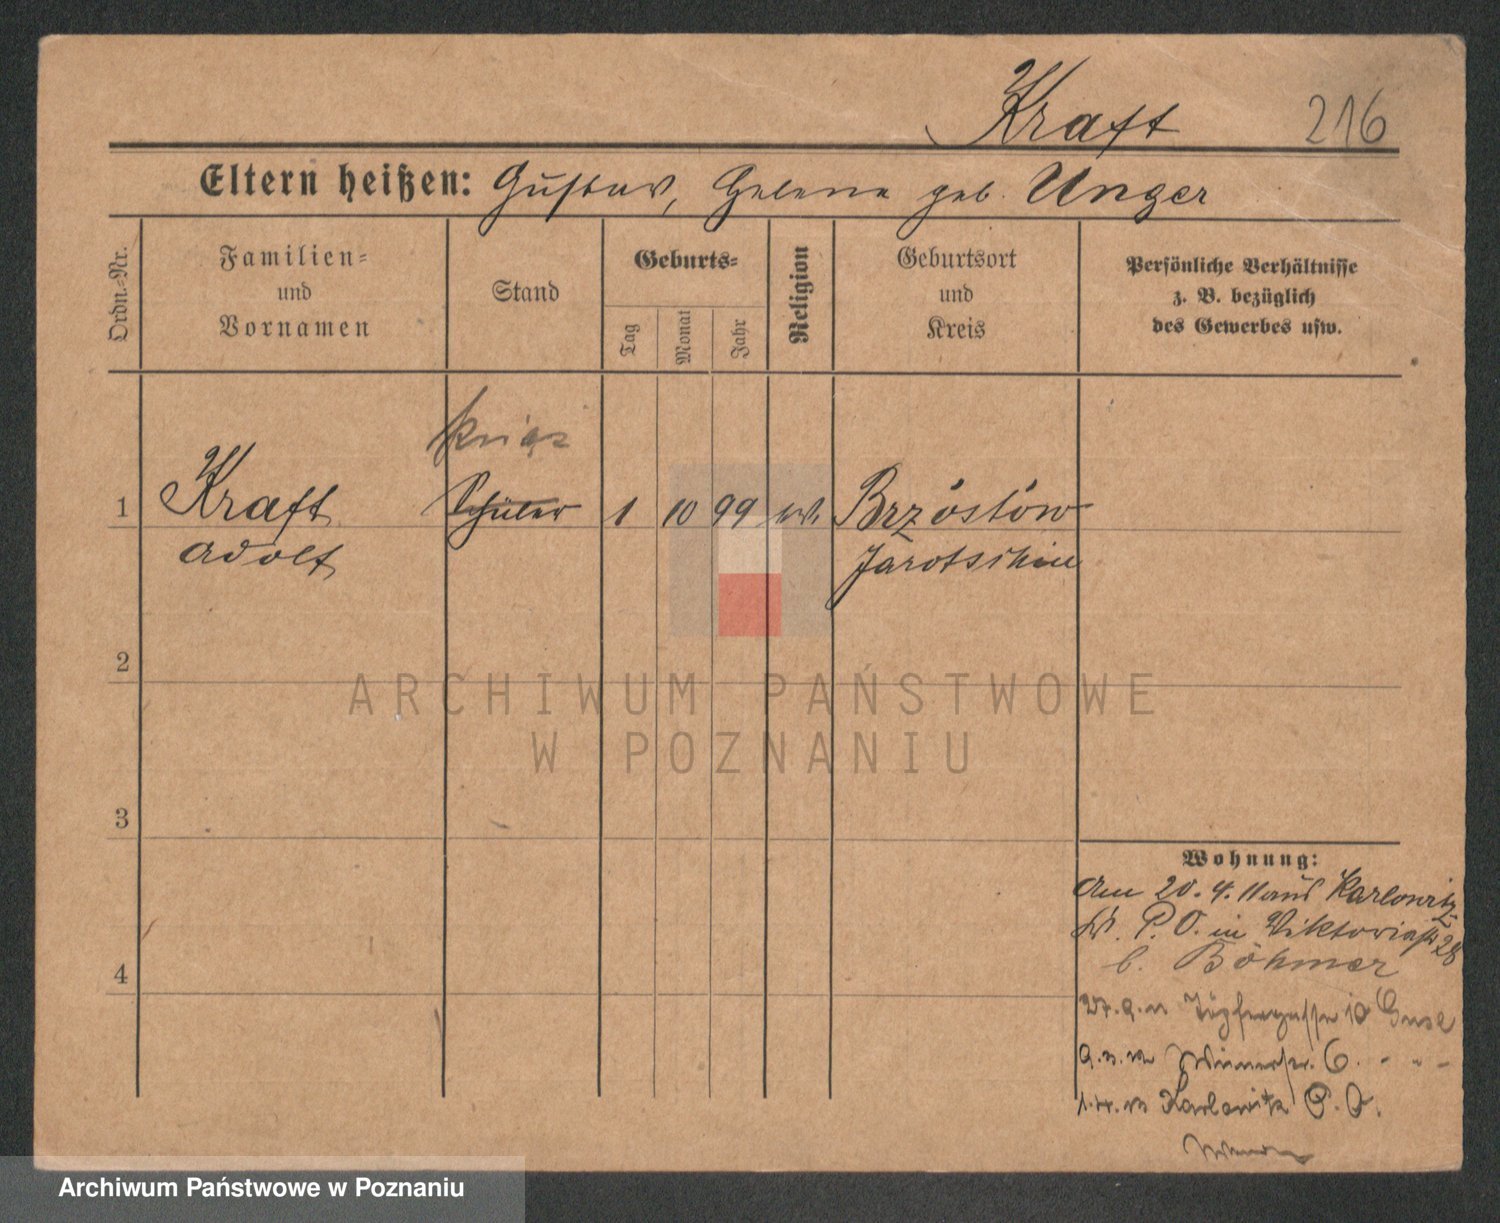 Kraft 216
Eltern heißen: Gustav, Helene geb. Unger
Ordn.=Nr.
Familien=
und
Vornamen
Stand
Geburts=
Tag
Monat
Jahr
Religion
Geburtsort
und
Kreis
Persönliche Verhältnisse
z. B. bezüglich
des Gewerbes usw.
1 Kraft Schüler 1 10 99 ev. Brzóstów
Adolf Jarotschin
2
3
4
Wohnung:
Am 20. 4. 11 aus Karlowitz
P. O. in Viktoriastr 28
b. Böhmer
Töpfergasse 10
6. - - -
Karlowitz P. O.
ARCHIWUM PAŃSTWOWE
W POZNANIU
Archiwum Państwowe w Poznaniu